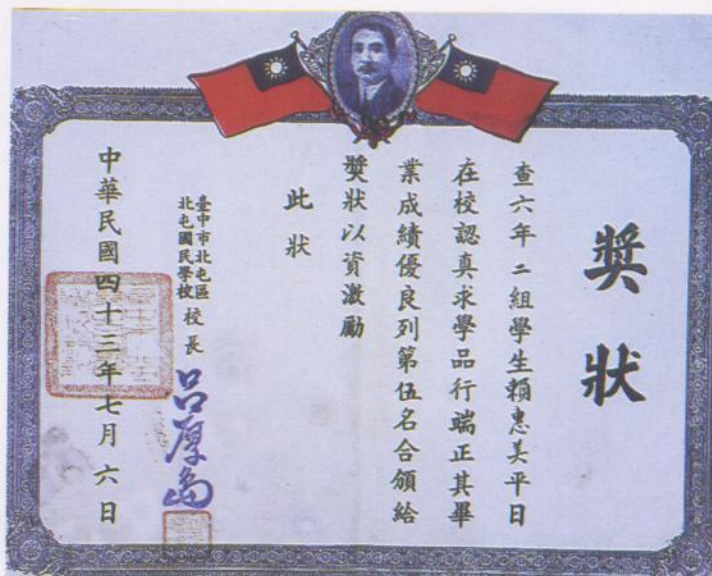 獎狀
查六年二組學生賴惠美平日
在校認真求學品行端正其畢
業成績優良列第伍名合頒給
獎狀以資激勵
此狀
臺中市北屯區
北屯國民學校
校長
中華民國四十三年七月六日